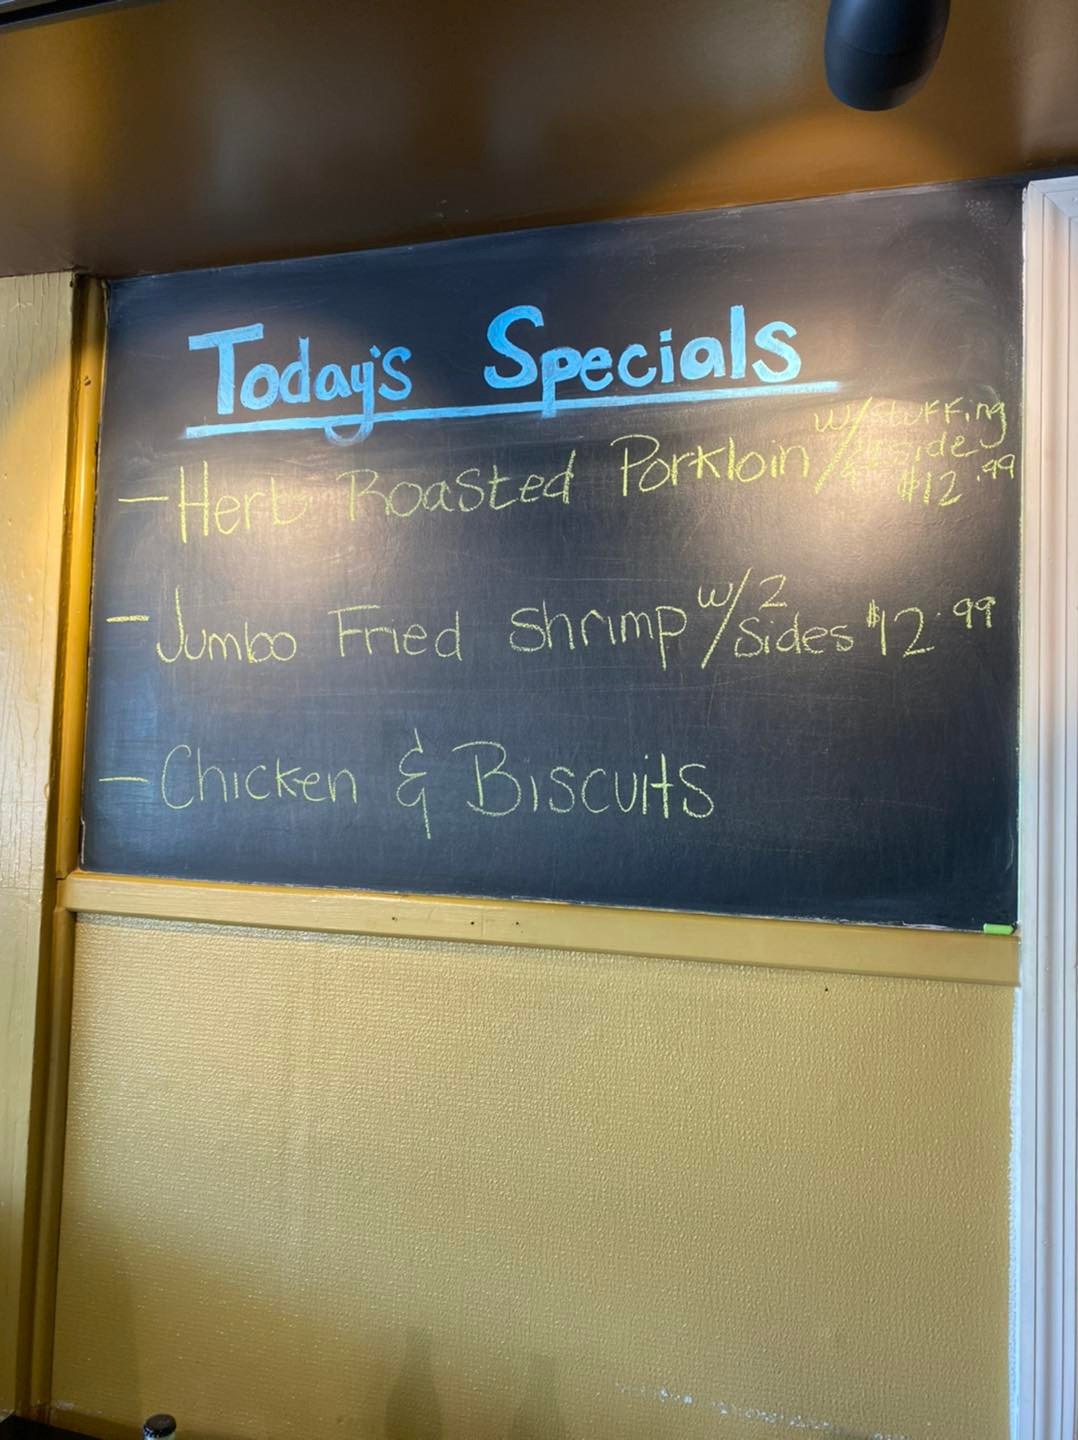 Today's Specials
- Herb Roasted Porkloin w/stuffing
& side
$12.99
- Jumbo Fried Shrimp w/2
Sides $12.99
- Chicken & Biscuits